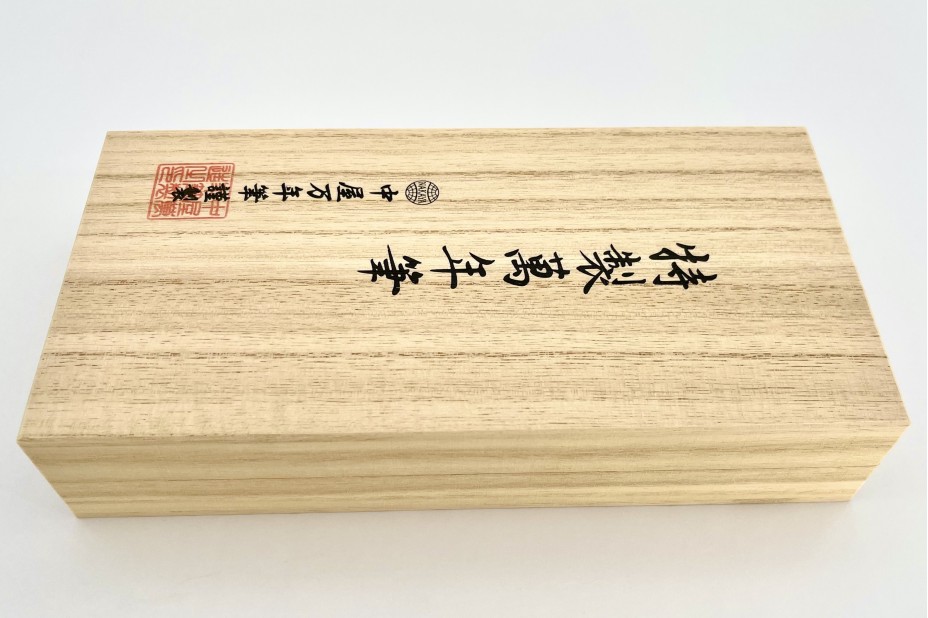 特製萬年筆
中屋万年筆謹製